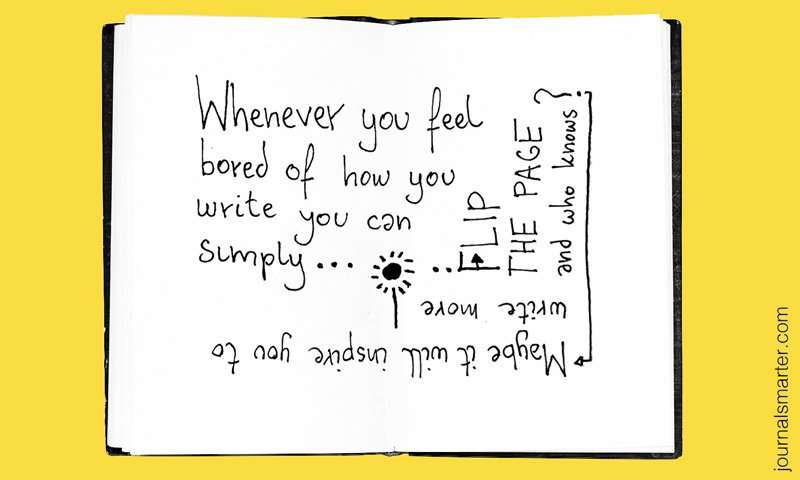 Whenever you feel
bored of how you
write you can
simply...
..FLIP
THE PAGE
and who knows?
Maybe it will inspire you to
write more
journalsmarter.com